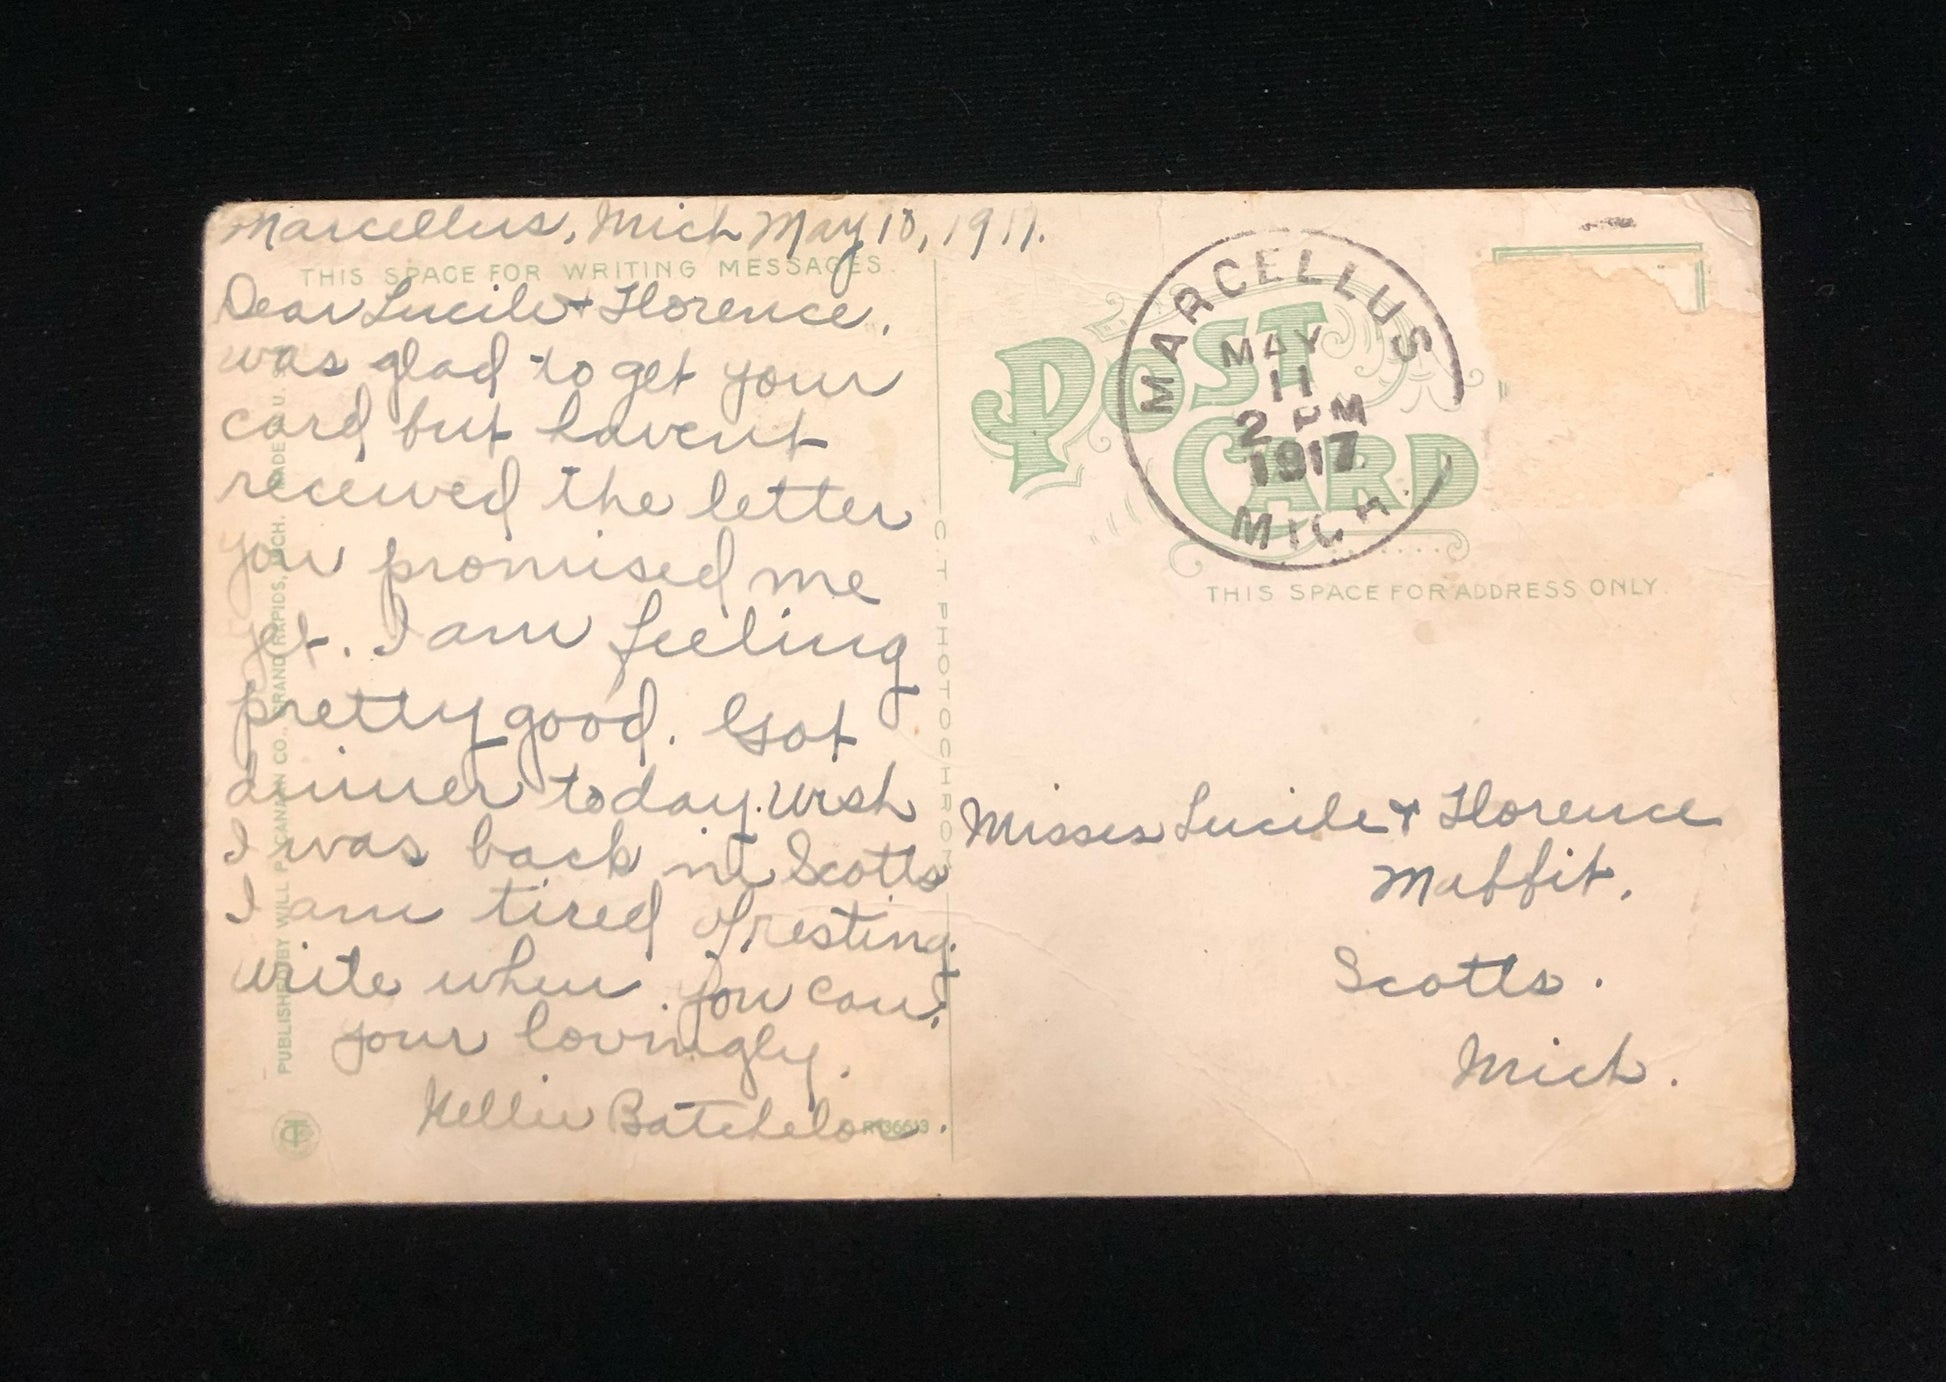 Marcellus, Mich May 10, 1917.
THIS SPACE FOR WRITING MESSAGES.
Dear Lucile & Florence,
was glad to get your
card but havent
received the letter
you promised me
yet. I am feeling
pretty good. Got
dinner today. Wish
I was back in Scotts
I am tired of resting.
write when you can.
your lovingly.
Nellie Batchelor.
PUBLISHED BY WILL P. CANAAN CO., GRAND RAPIDS, MICH. MADE U.S.
C.T. PHOTOCHROM
POST
CARD
MARCELLUS
MAY
11
2 PM
1917
MICH.
THIS SPACE FOR ADDRESS ONLY.
Misses Lucile & Florence
Maffit.
Scotts.
Mich.